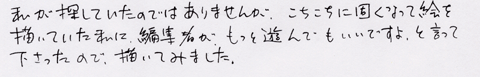 私が探していたのではありませんが、こちこちに固くなって絵を
描いていた私に、編集者が、もっと遊んでもいいですよ、と言って
下さったので、描いてみました。